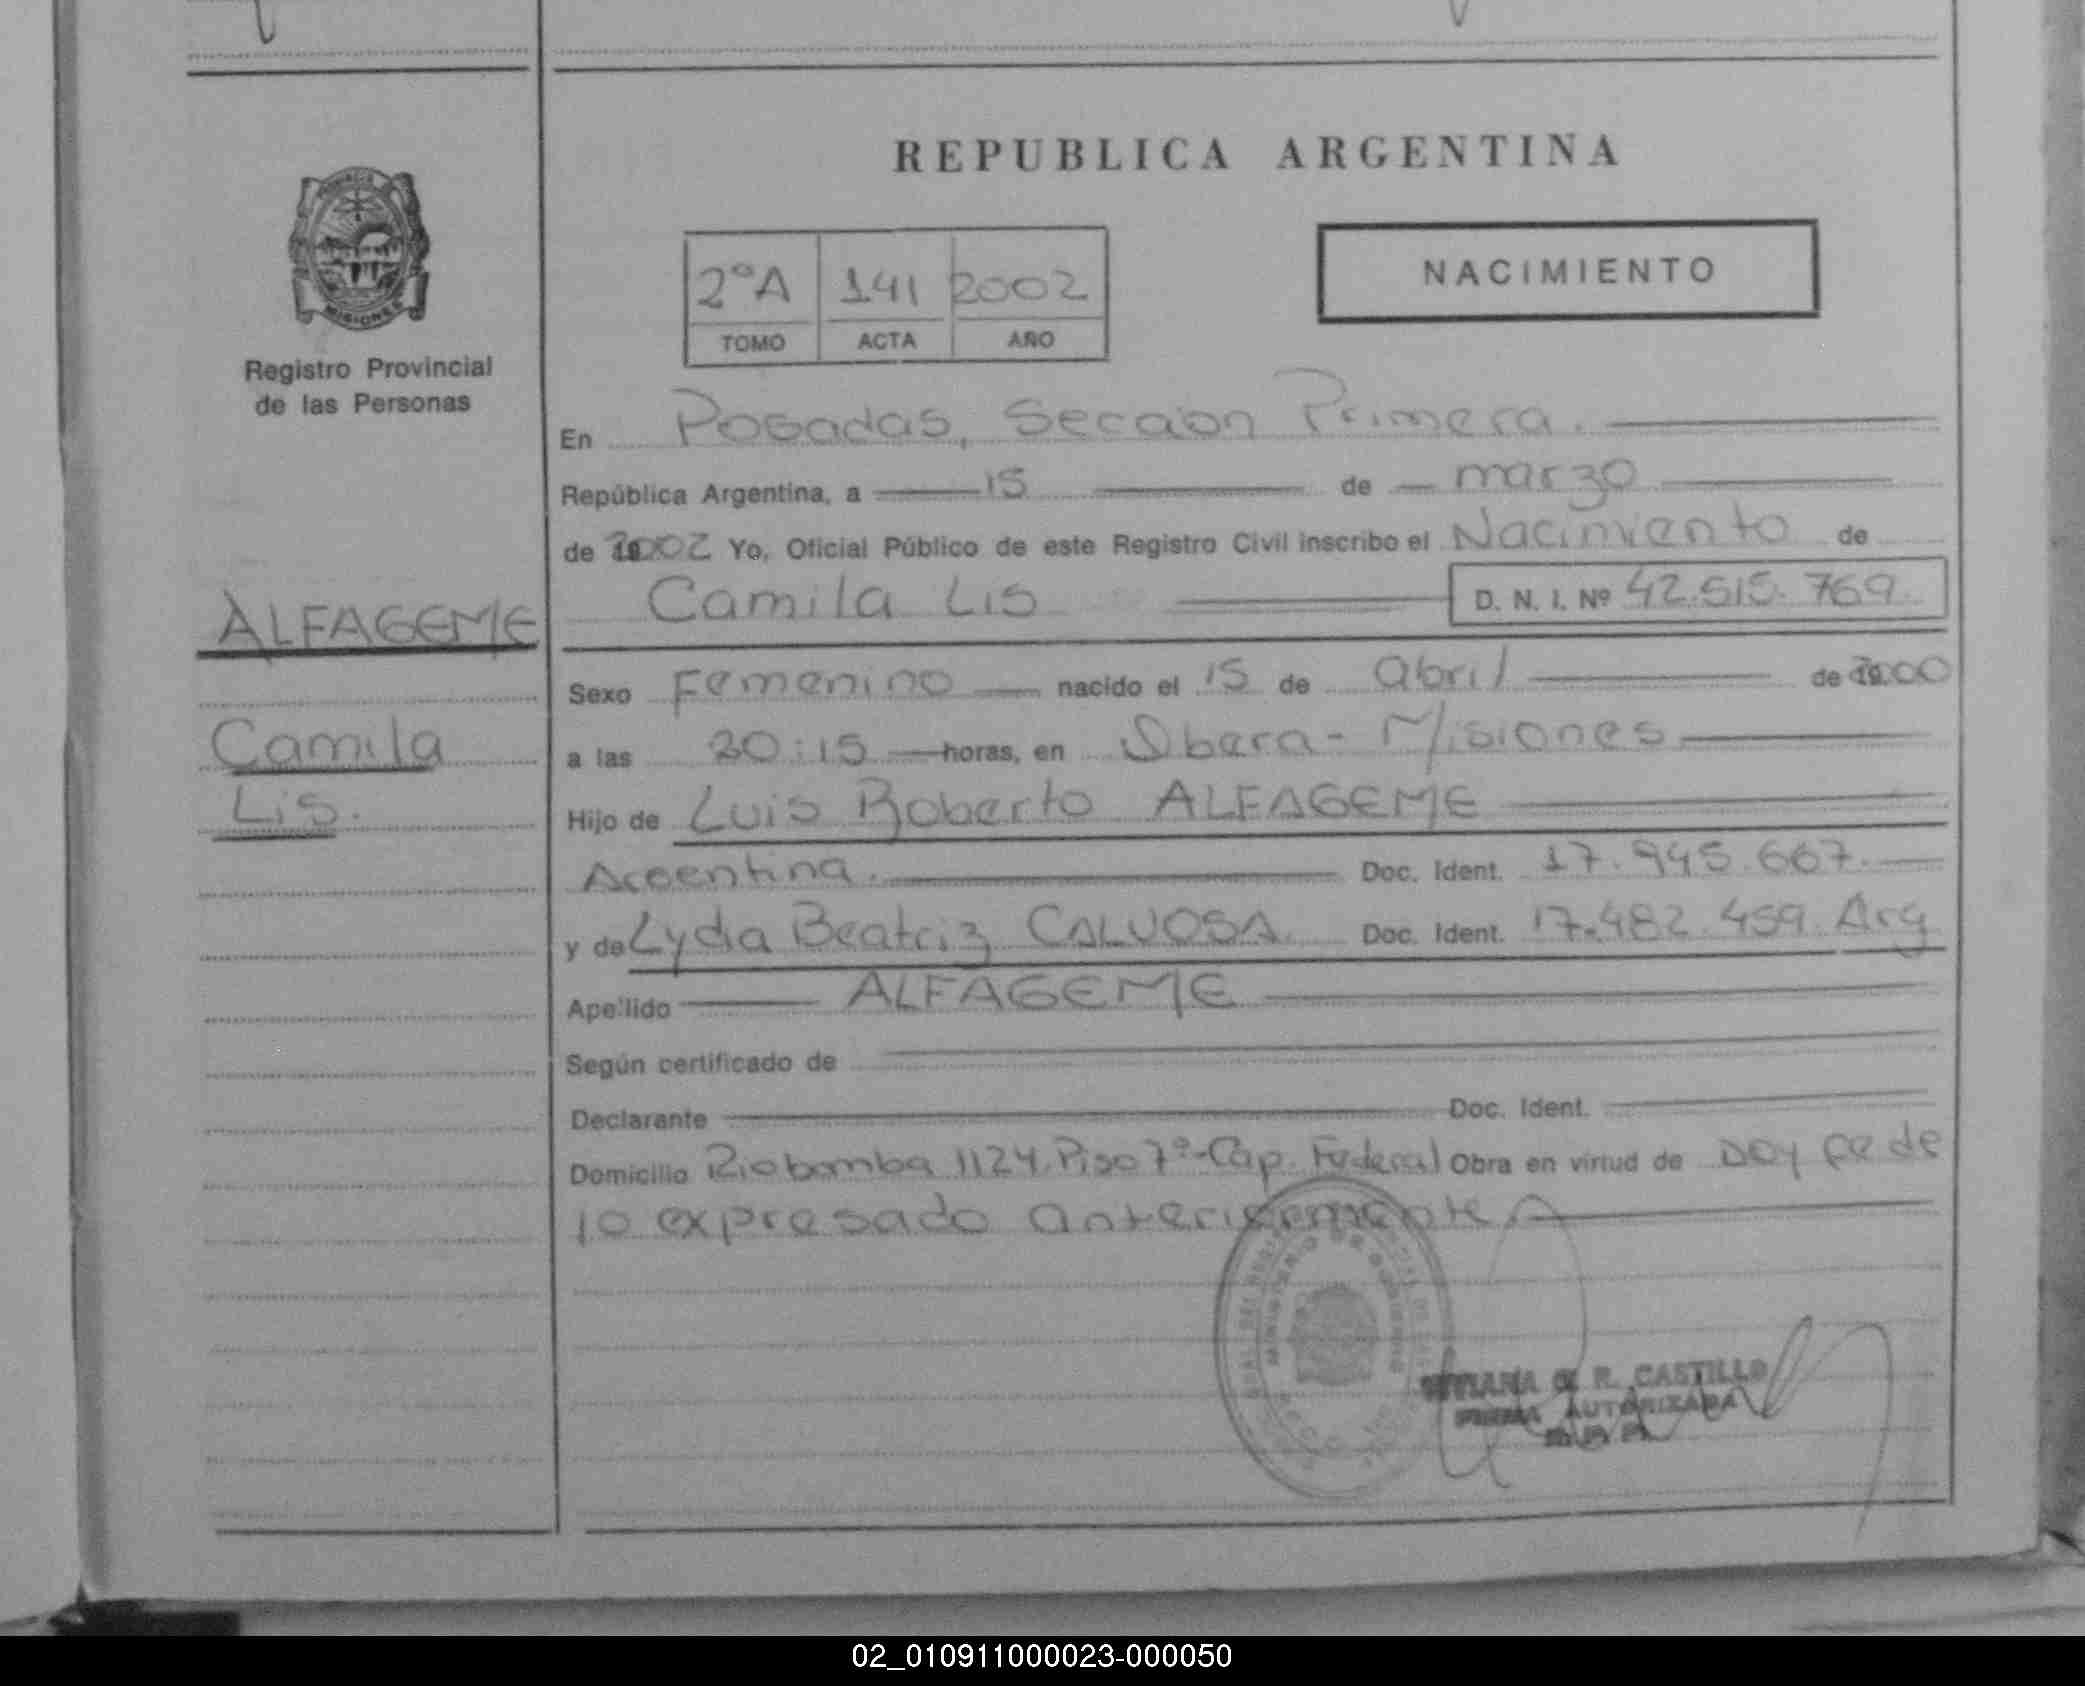 REPUBLICA ARGENTINA
NACIMIENTO
2ºA 141 2002
TOMO ACTA AÑO
MISIONES
Registro Provincial
de las Personas
ALFAGEME
Camila
Lis.
En Posadas, Sección Primera.
República Argentina, a 15 de marzo
de 2002 Yo, Oficial Público de este Registro Civil inscribo el Nacimiento de
Camila Lis D. N. I. Nº 42.515.769.
Sexo Femenino nacido el 15 de abril de 2000
a las 20:15 horas, en Obera - Misiones
Hijo de Luis Roberto ALFAGEME
Argentina. Doc. Ident. 17.945.667.
y de Lydia Beatriz CALVOSA. Doc. Ident. 17.482.459. Arg
Apellido ALFAGEME
Según certificado de
Declarante Doc. Ident.
Domicilio Riobamba 1124. Piso 7º-Cap. Federal Obra en virtud de Doy fe de
lo expresado anteriormente
R. CASTILLO
FIRMA AUTORIZADA
02_010911000023-000050